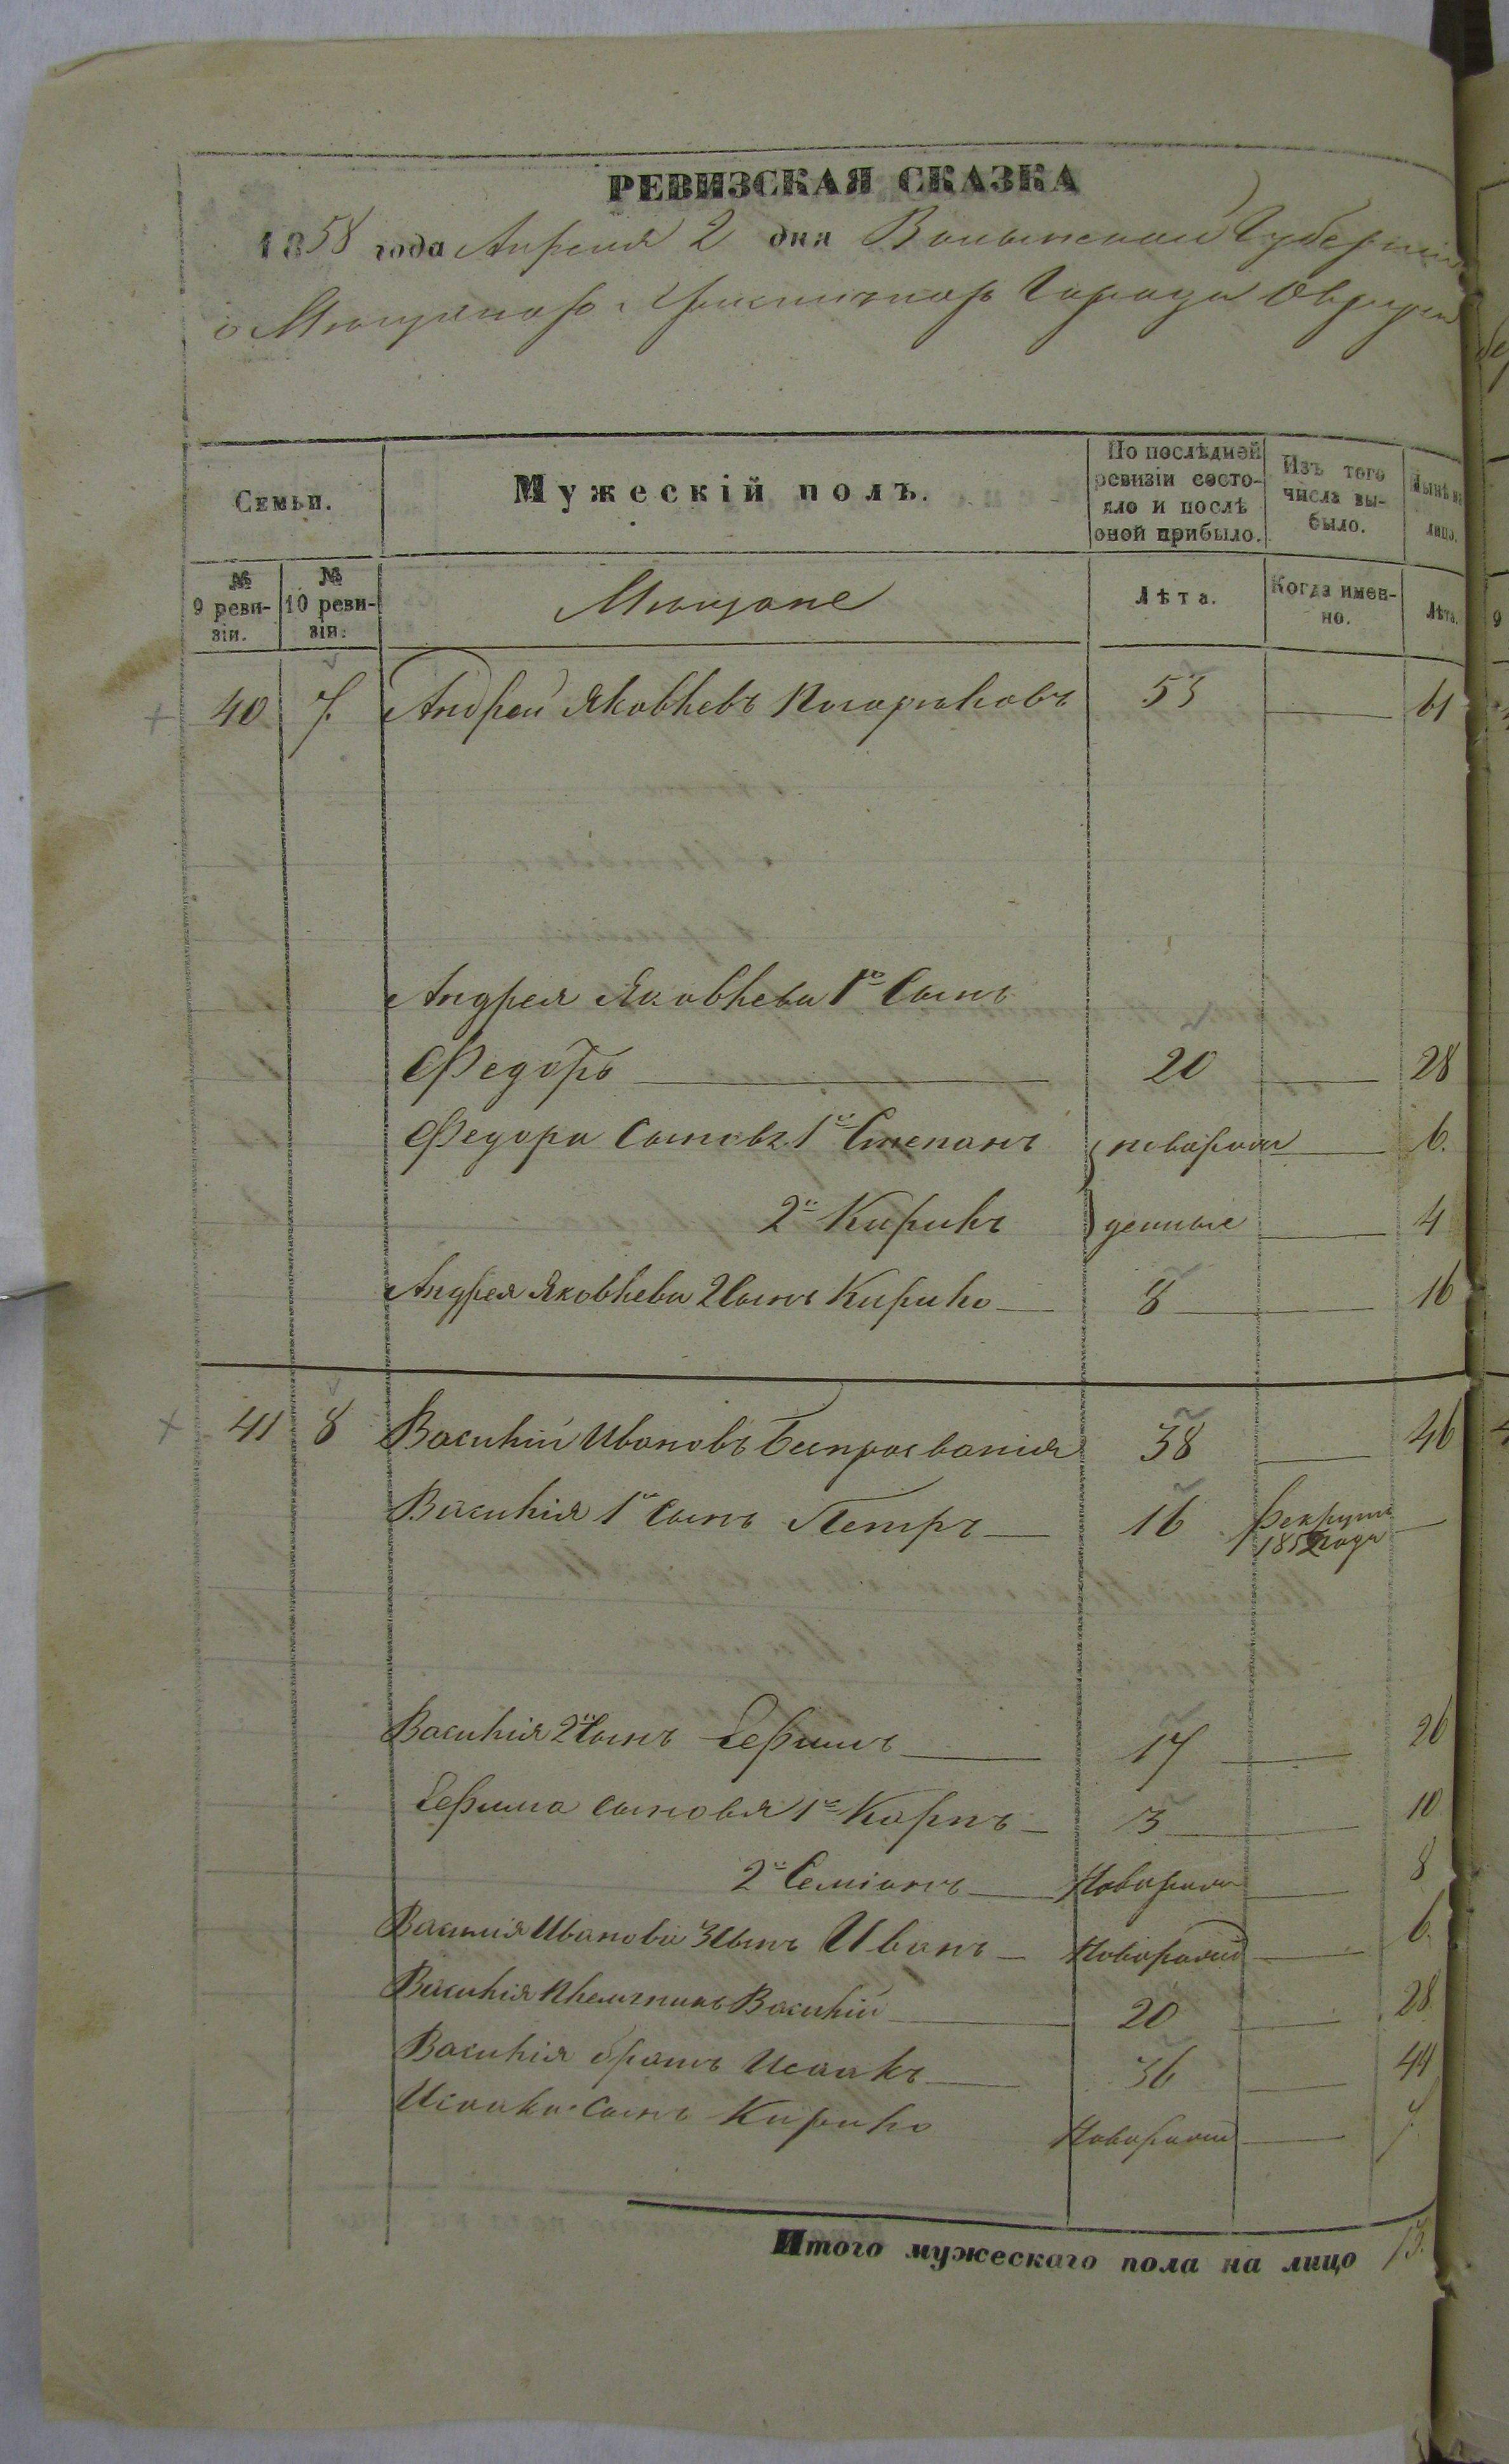 РЕВИЗСКАЯ СКАЗКА
1858 года Апреля 2 дня Волынской Губерніи
о Мещанах Христианах Города Овруча
Семьи.
Мужескій полъ.
По послѣдней ревизіи состояло и послѣ оной прибыло.
Изъ того числа выбыло.
Нынѣ на лицо.
№ 9 ревизіи.
№ 10 ревизіи.
Мещане
Лѣта.
Когда именно.
Лѣта.
40 7. Андрей Яковлевъ 53 61
Андрея Яковлева 1й Сынъ
Федоръ 20 28
Федора Сыновья 1й Степанъ новорож 6.
2й Кирикъ денные 4
Андрея Яковлева 2 Сынъ Кирило 8 16
41 8 Василій Ивановъ 38 46
Василія 1й Сынъ Петръ 16 рекрутъ 1852 года
Василія 2й Сынъ Ефимъ 17 26
Ефима сыновья 1й Карпъ 3 10
2й Семіонъ Новорож 8
Василія Иванова 3 Сынъ Иванъ Новорожд 6.
Василія Племянникъ Василій 20 28
Василія братъ Исаакъ 36 44
Исаака Сынъ Кирило Новорожд 7.
Итого мужескаго пола на лицо 13.